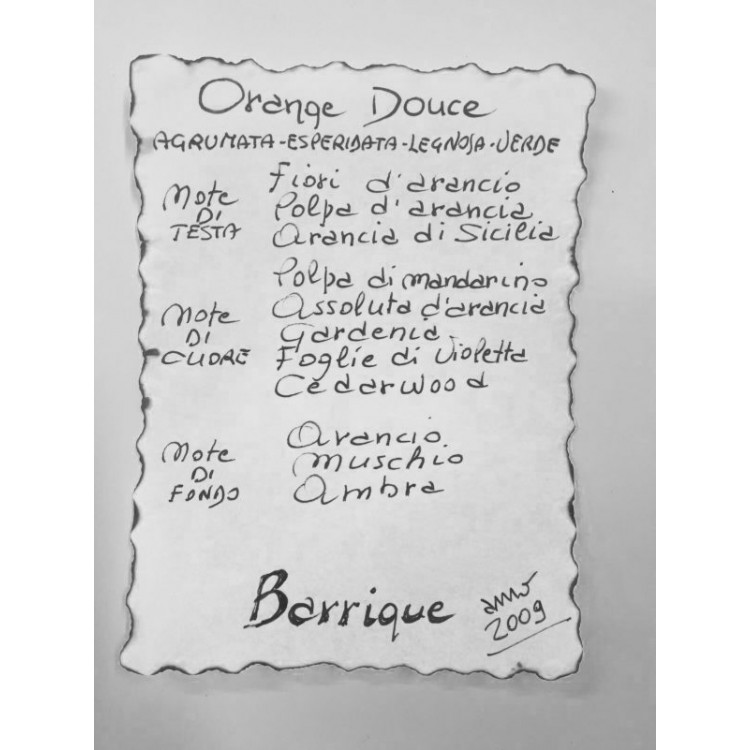 Orange Douce
AGRUMATA-ESPERIDATA-LEGNOSA-VERDE
Note
DI
TESTA
Fiori d'arancio
Polpa d'arancia
Arancia di Sicilia
Note
DI
CUORE
Polpa di mandarino
Assoluta d'arancia
Gardenia
Foglie di Violetta
Cedarwood
Note
DI
FONDO
Arancio
Muschio
Ambra
Barrique
anno
2009